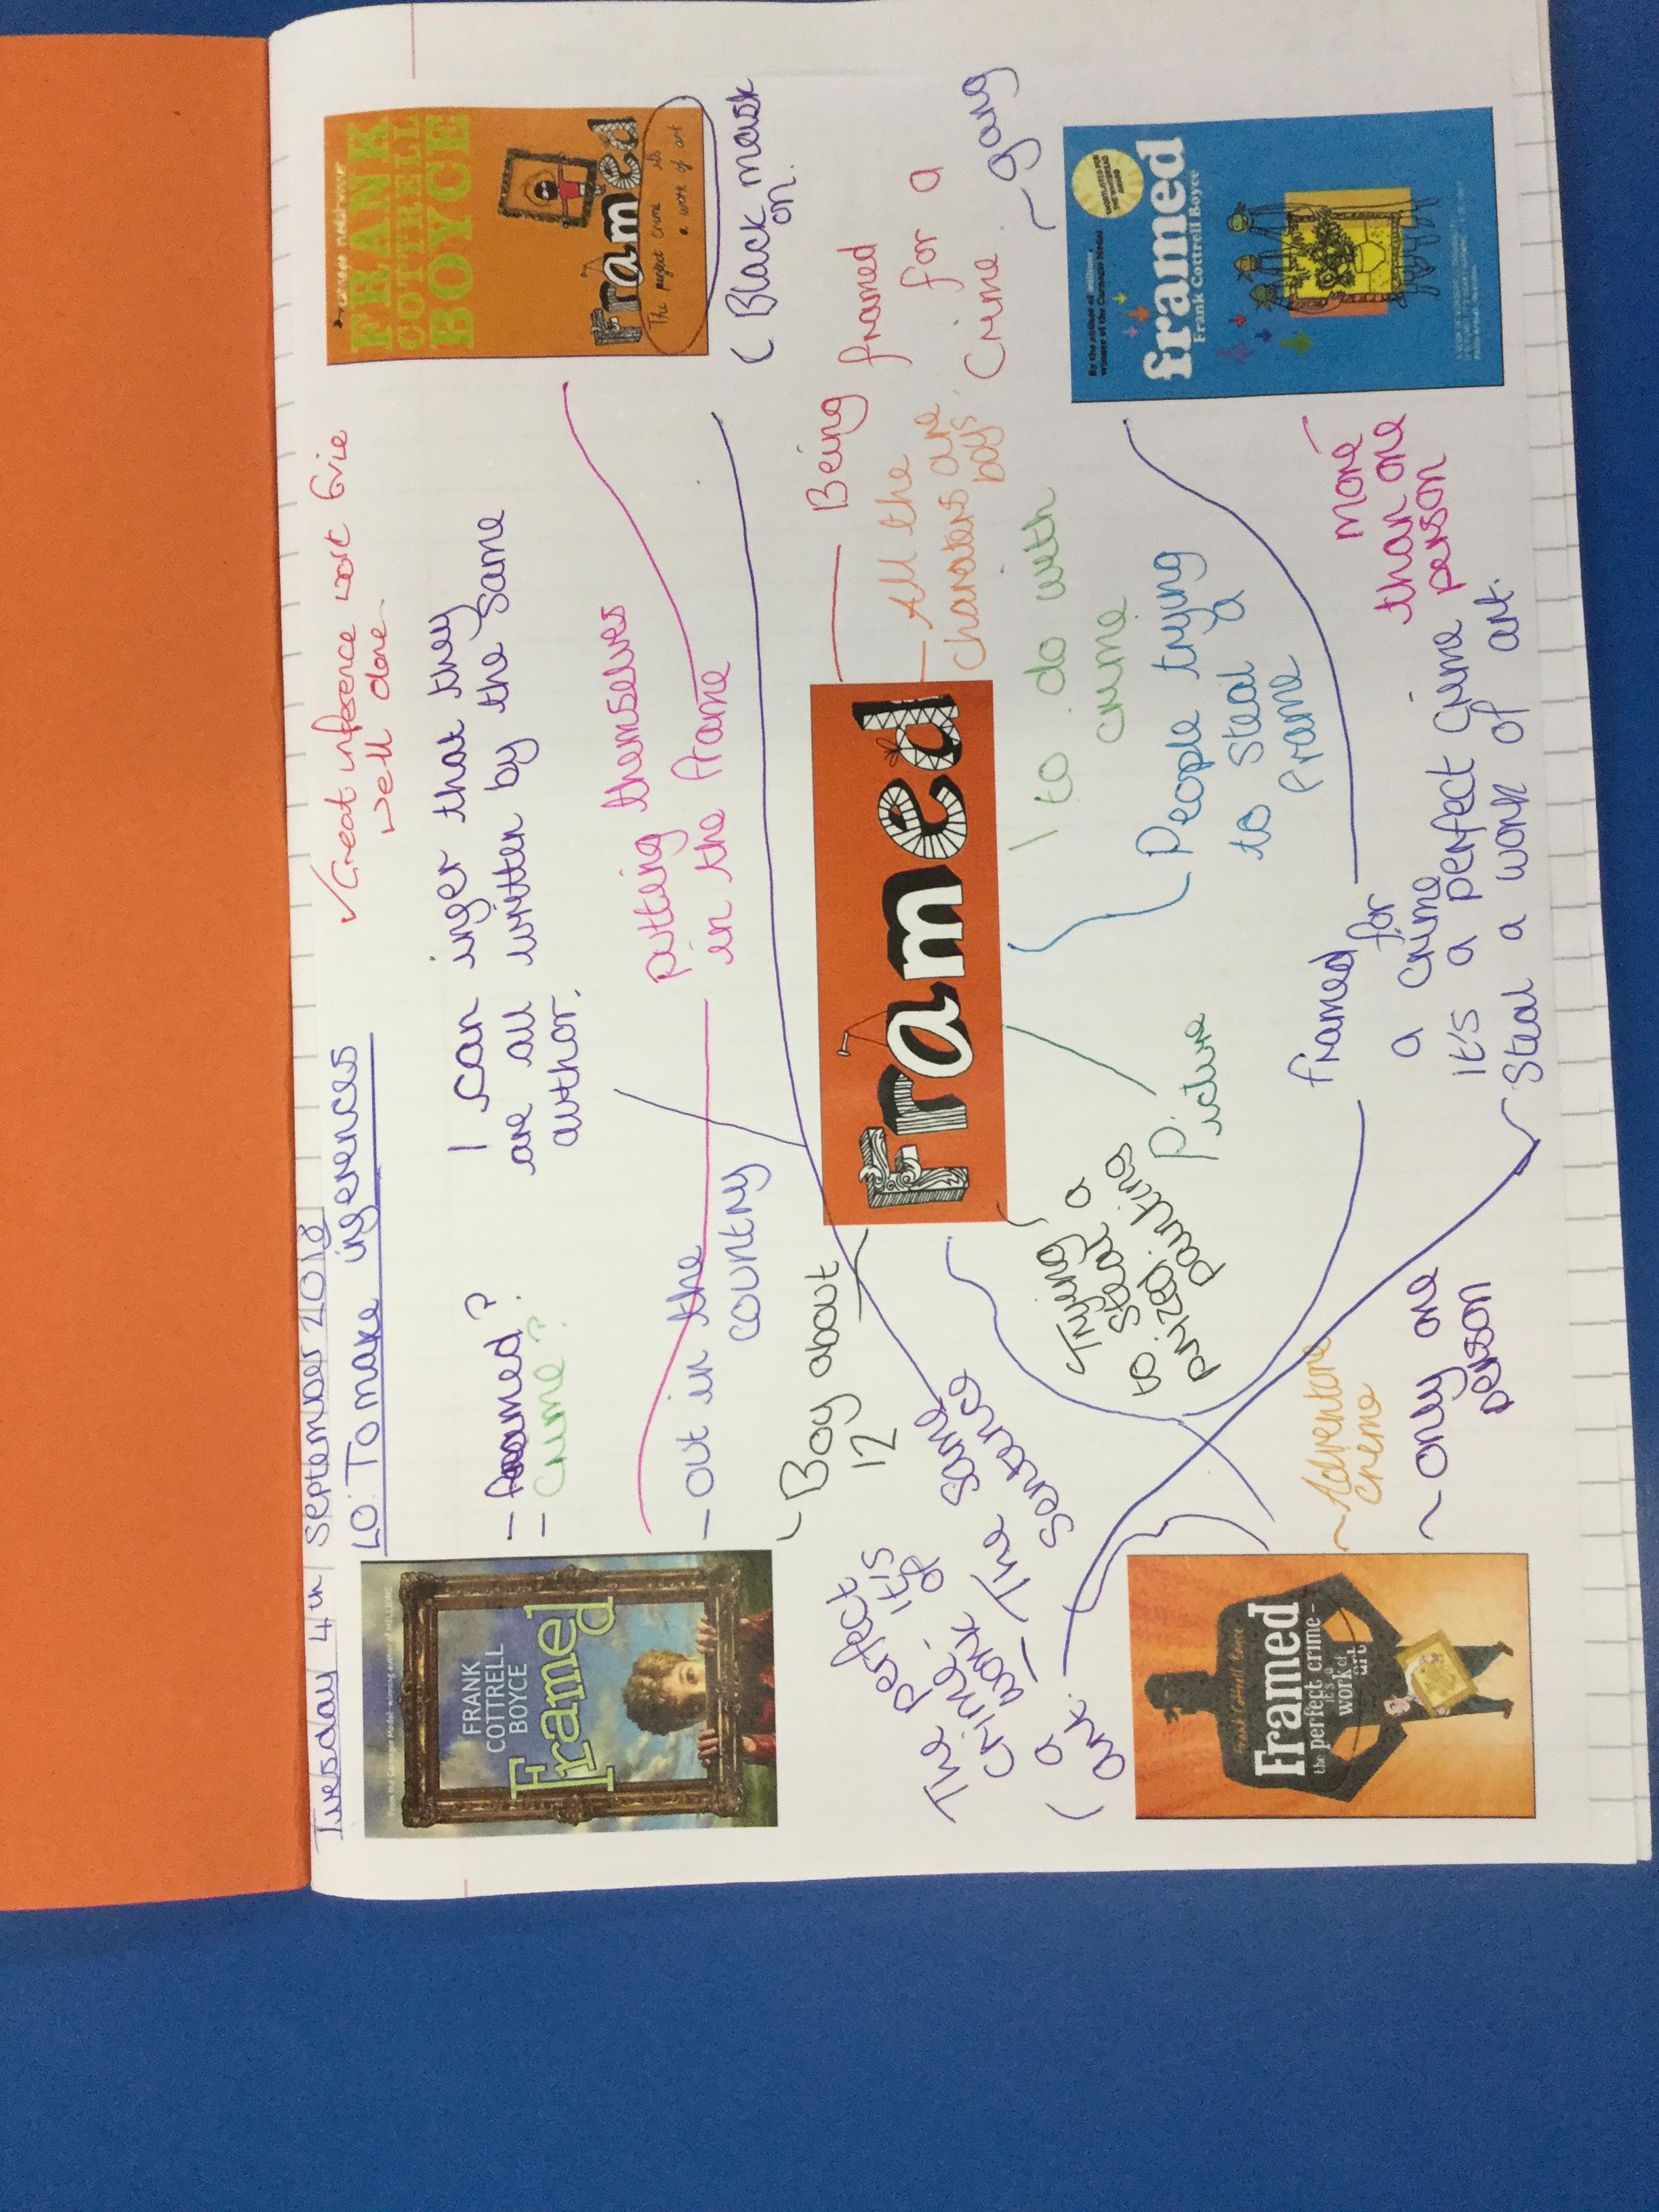 Tuesday 4th September 2018
LO: To make inferences
✓ Great inference work Evie
well done.
From the Carnegie Medal-winning author of MILLIONS
FRANK
COTTRELL
BOYCE
Framed
- framed?
- crime?
I can infer that they
are all written by the same
author.
FRANK
COTTRELL
BOYCE
Framed
The perfect crime its
a work of art
(Black mask
on.
putting themselves
in the frame
- out in the
country
- Boy about
12
Framed
Being framed
for a
crime.
All the
charaters are
boys.
to do with
crime
People trying
to steal a
frame
Picture
Trying
to steal a
prized
painting
The perfect
crime, it's
a work of
art.
- The same
sentence
- gang
By the author of millions,
winner of the Carnegie Medal
framed
Frank Cottrell Boyce
more
than one
person
framed for
a crime
it's a perfect crime
Steal a work of art.
- Adventure
cneme
- only one
person
Frank Cottrell Boyce
Framed
the perfect crime -
it's a
work of
art